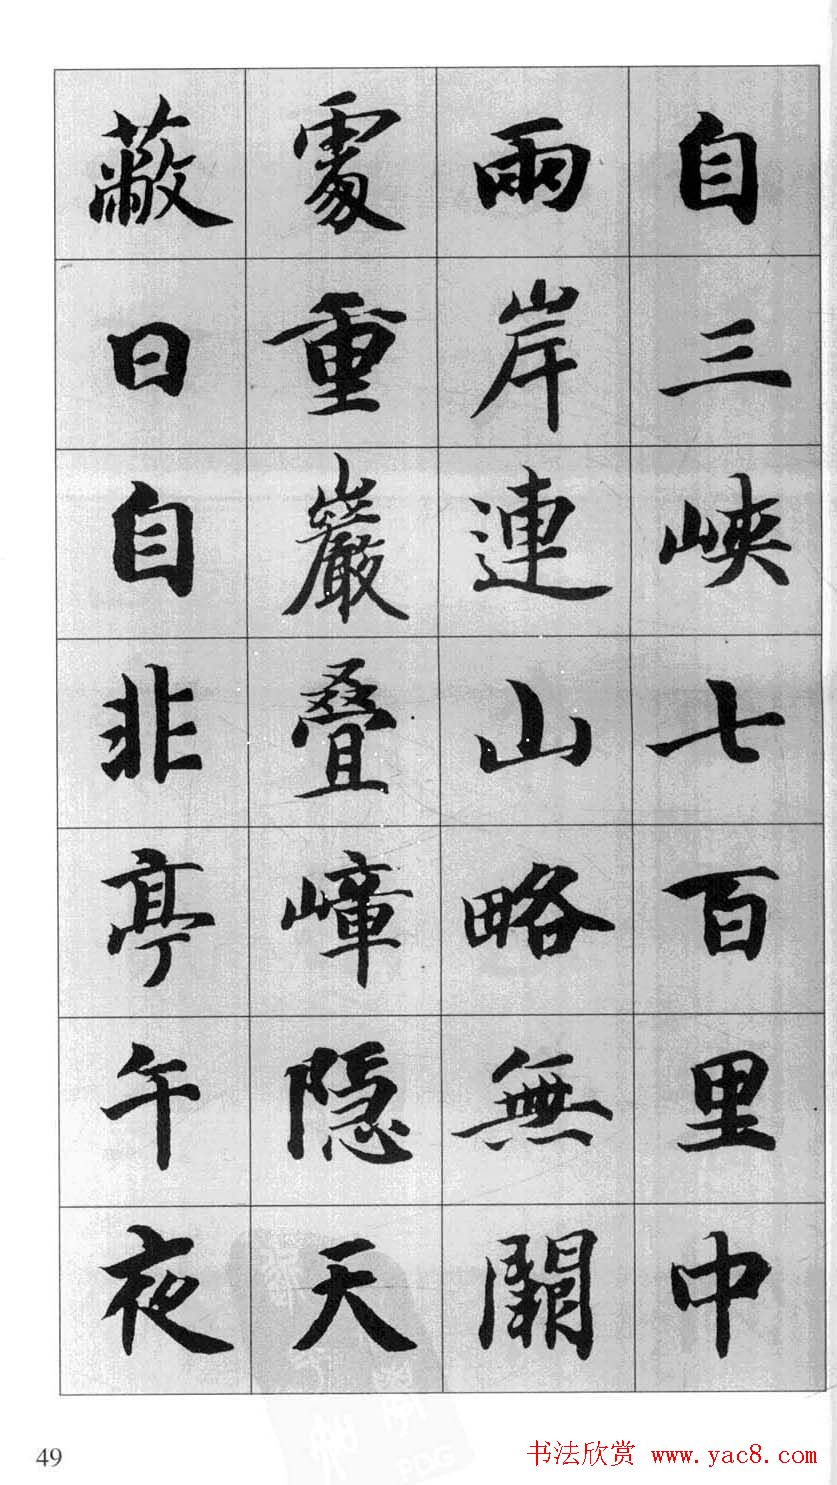 自三峡七百里中
兩岸連山略無闕
處重巖叠嶂隐天
蔽日自非亭午夜
49
书法欣赏 www.yac8.com
PDG